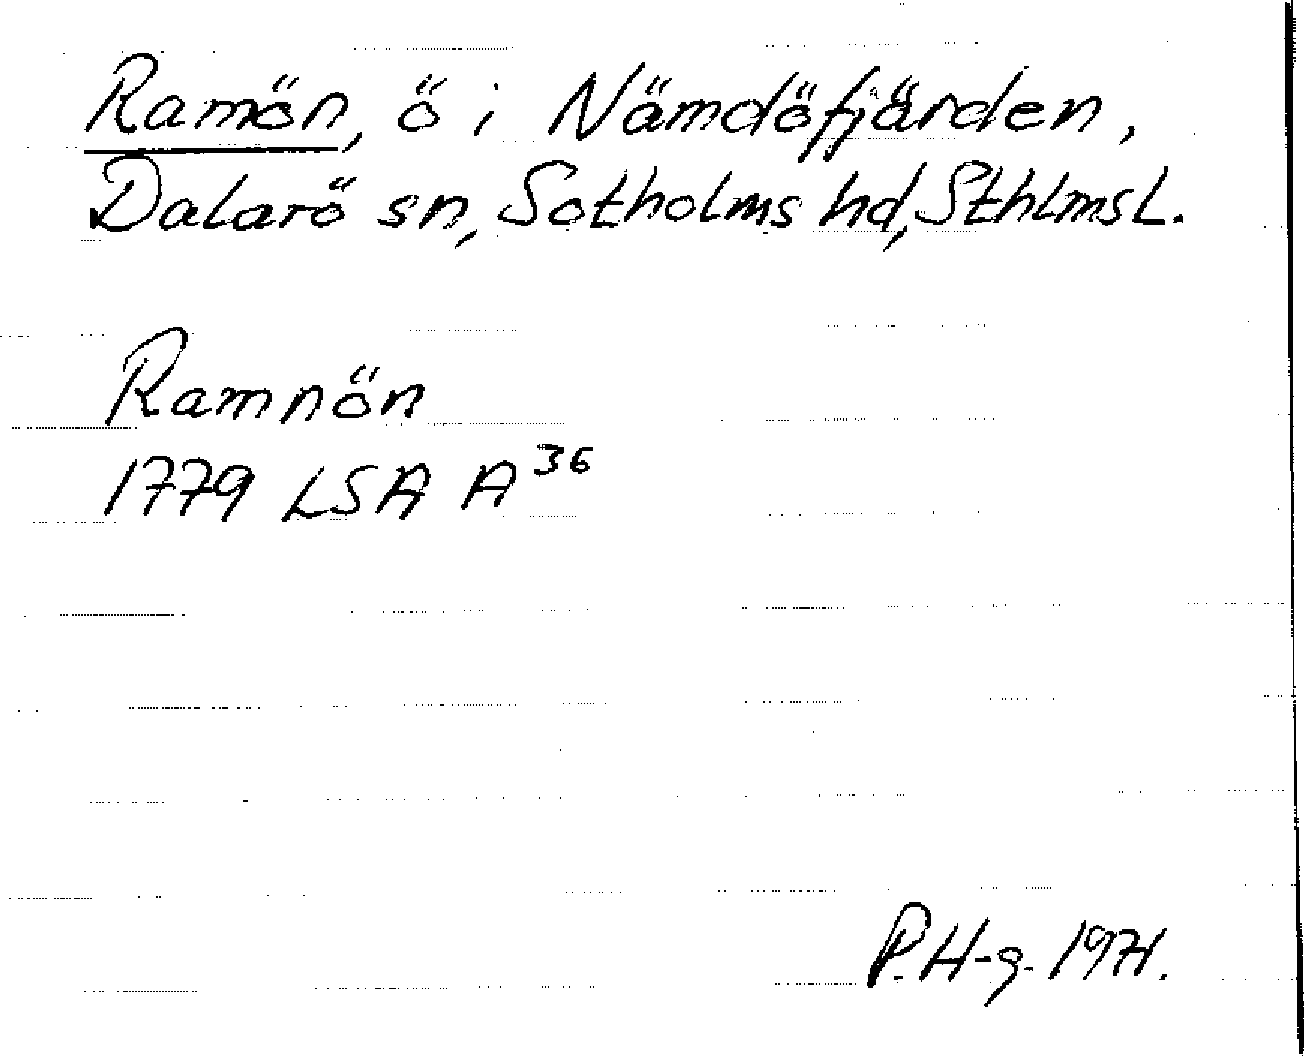 Ramön, ö i Nämdöfjärden,
Dalarö sn, Sotholms hd, SthlmsL.
Ramnön
1779 LSA A³⁶
P. H-g. 1971.